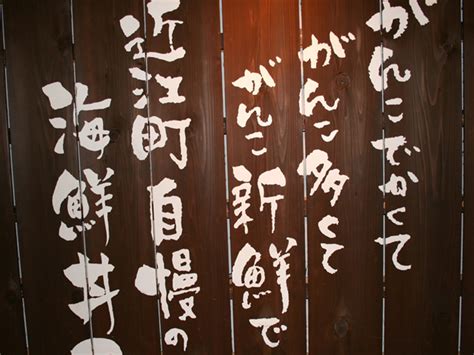 がんこでかくて
がんこ多くて
がんこ新鮮で
近江町自慢の
海鮮丼。